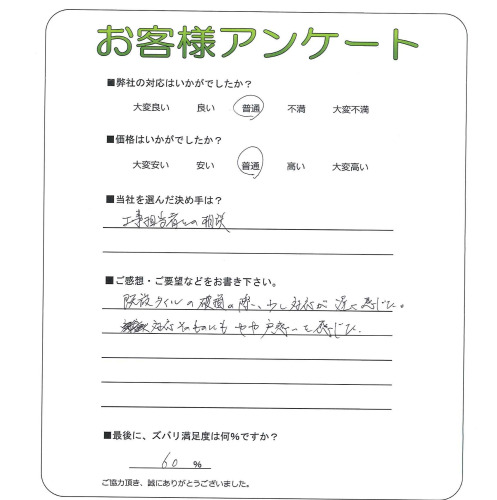 お客様アンケート
■弊社の対応はいかがでしたか？
大変良い 良い 普通 不満 大変不満
■価格はいかがでしたか？
大変安い 安い 普通 高い 大変高い
■当社を選んだ決め手は？
工事担当者との相談
■ご感想・ご要望などをお書き下さい。
既設タイルの破損の際、少し対応が遅く感じた。
対応そのものにもやや戸惑って感じた。
■最後に、ズバリ満足度は何%ですか？
60 %
ご協力頂き、誠にありがとうございました。